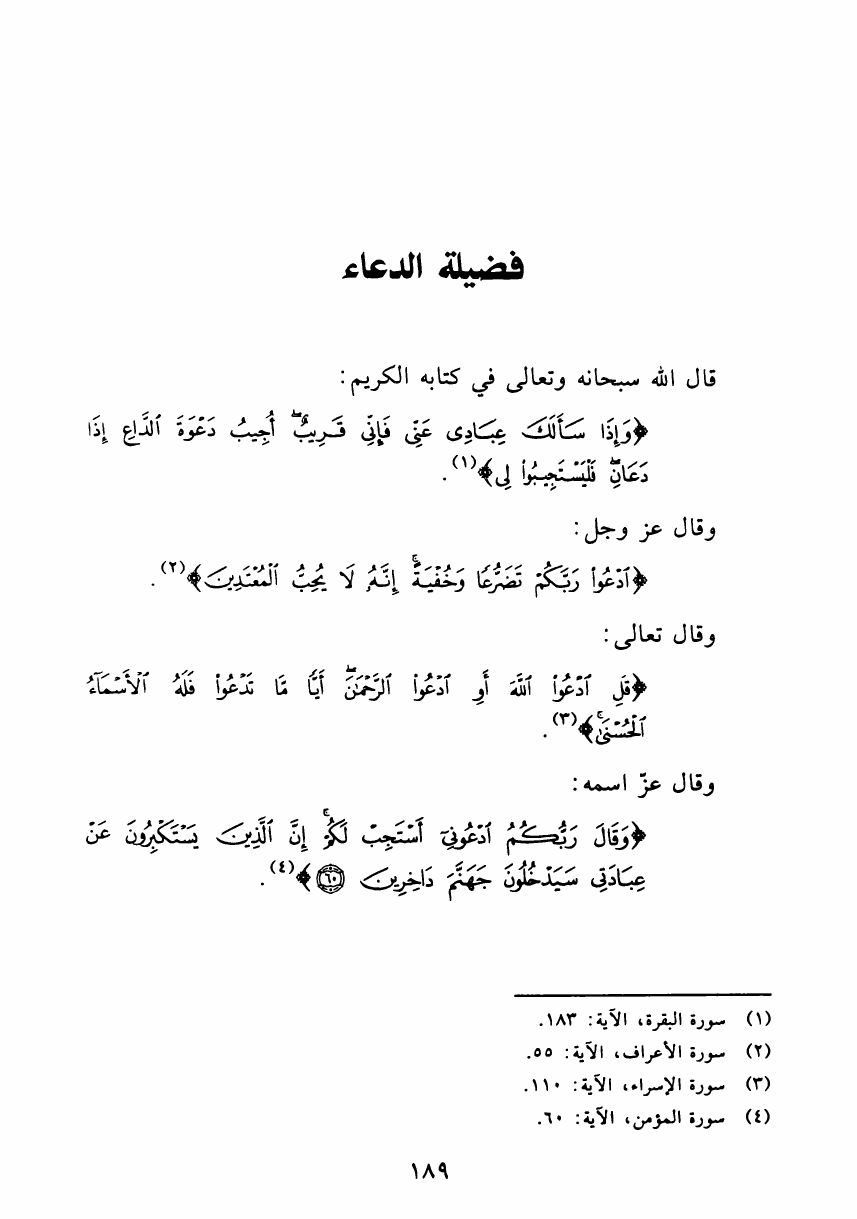 فضيلة الدعاء
قال الله سبحانه وتعالى في كتابه الكريم:
﴿وَإِذَا سَأَلَكَ عِبَادِى عَنِّى فَإِنِّى قَرِيبٌ ۖ أُجِيبُ دَعْوَةَ ٱلدَّاعِ إِذَا
دَعَانِ ۖ فَلْيَسْتَجِيبُوا۟ لِى﴾(١).
وقال عز وجل:
﴿ٱدْعُوا۟ رَبَّكُمْ تَضَرُّعًا وَخُفْيَةً ۚ إِنَّهُۥ لَا يُحِبُّ ٱلْمُعْتَدِينَ﴾(٢).
وقال تعالى:
﴿قُلِ ٱدْعُوا۟ ٱللَّهَ أَوِ ٱدْعُوا۟ ٱلرَّحْمَـٰنَ ۖ أَيًّا مَّا تَدْعُوا۟ فَلَهُ ٱلْأَسْمَآءُ
ٱلْحُسْنَىٰ ۚ﴾(٣).
وقال عزّ اسمه:
﴿وَقَالَ رَبُّكُمُ ٱدْعُونِىٓ أَسْتَجِبْ لَكُمْ ۚ إِنَّ ٱلَّذِينَ يَسْتَكْبِرُونَ عَنْ
عِبَادَتِى سَيَدْخُلُونَ جَهَنَّمَ دَاخِرِينَ ٦٠﴾(٤).
(١) سورة البقرة، الآية: ١٨٣.
(٢) سورة الأعراف، الآية: ٥٥.
(٣) سورة الإسراء، الآية: ١١٠.
(٤) سورة المؤمن، الآية: ٦٠.
١٨٩